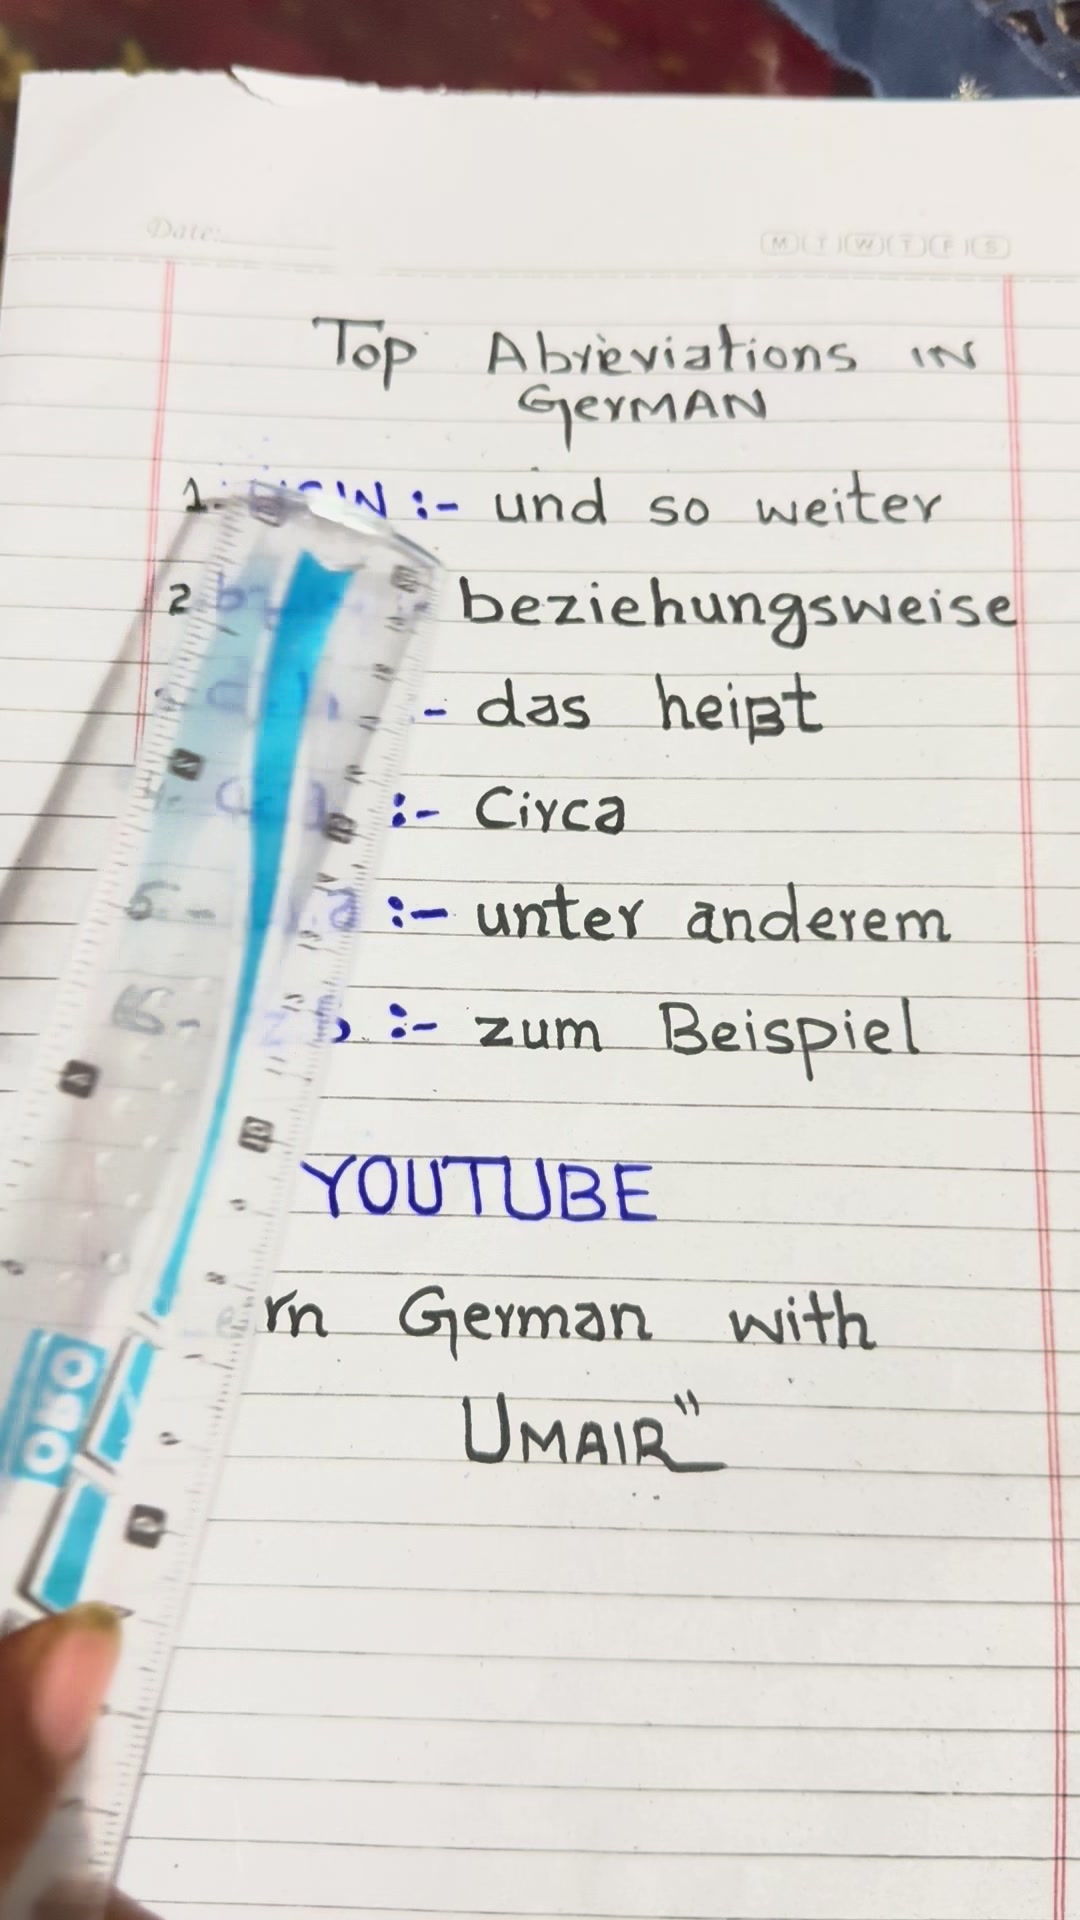 Date:
M T W T F S
Top Abrieviations IN
GerMAN
1. :- und so weiter
2 beziehungsweise
- das heißt
:- Circa
5- :- unter anderem
6- :- zum Beispiel
YOUTUBE
rn German with
UMAIR"
OBO